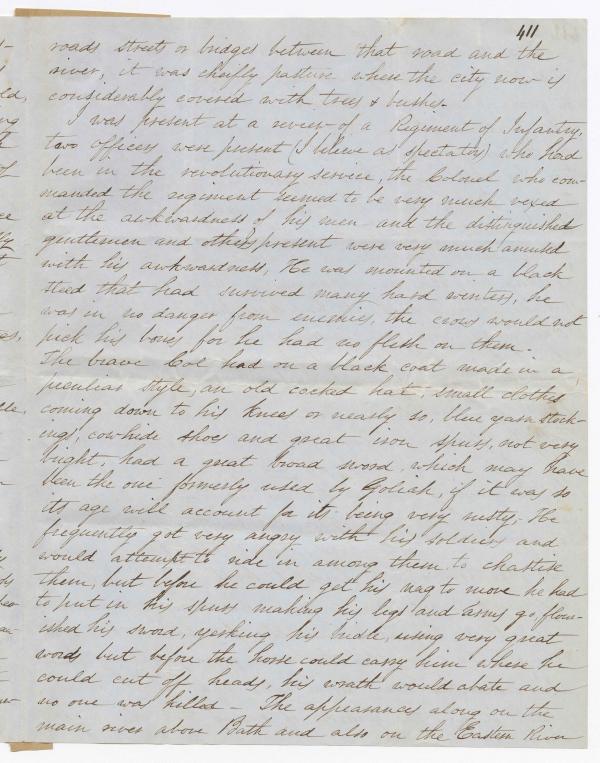 411
roads streets or bridges between that road and the
river, it was cheifly pasture where the city now is
considerably covered with trees & bushes.
I was present at a review of a Regiment of Infantry,
two officers were present (I believe as spectators) who had
been in the revolutionary service, the Colonel who com-
manded the regiment seemed to be very much vexed
at the awkwardness of his men and the distinguished
gentlemen and others present were very much amused
with his awkwardness, He was mounted on a black
steed that had survived many hard winters, he
was in no danger from enemies, the crows would not
pick his bones for he had no flesh on them.
The brave Col had on a black coat made in a
peculiar style, an old cocked hat, small clothes
coming down to his knees or nearly so, blue yarn stock-
ings, cowhide shoes and great iron spurs, not very
bright, had a great broad sword, which may have
been the one formerly used by Goliah, if it was so
its age will account for its being very rusty. He
frequently got very angry with his soldiers and
would attempt to ride in among them to chastise
them, but before he could get his nag to move he had
to put in his spurs making his legs and arms go flour-
ished his sword, yerking his bridle, using very great
words but before the horse could carry him where he
could cut off heads, his wrath would abate and
no one was killed – The appearances along on the
main river above Bath and also on the Eastern River